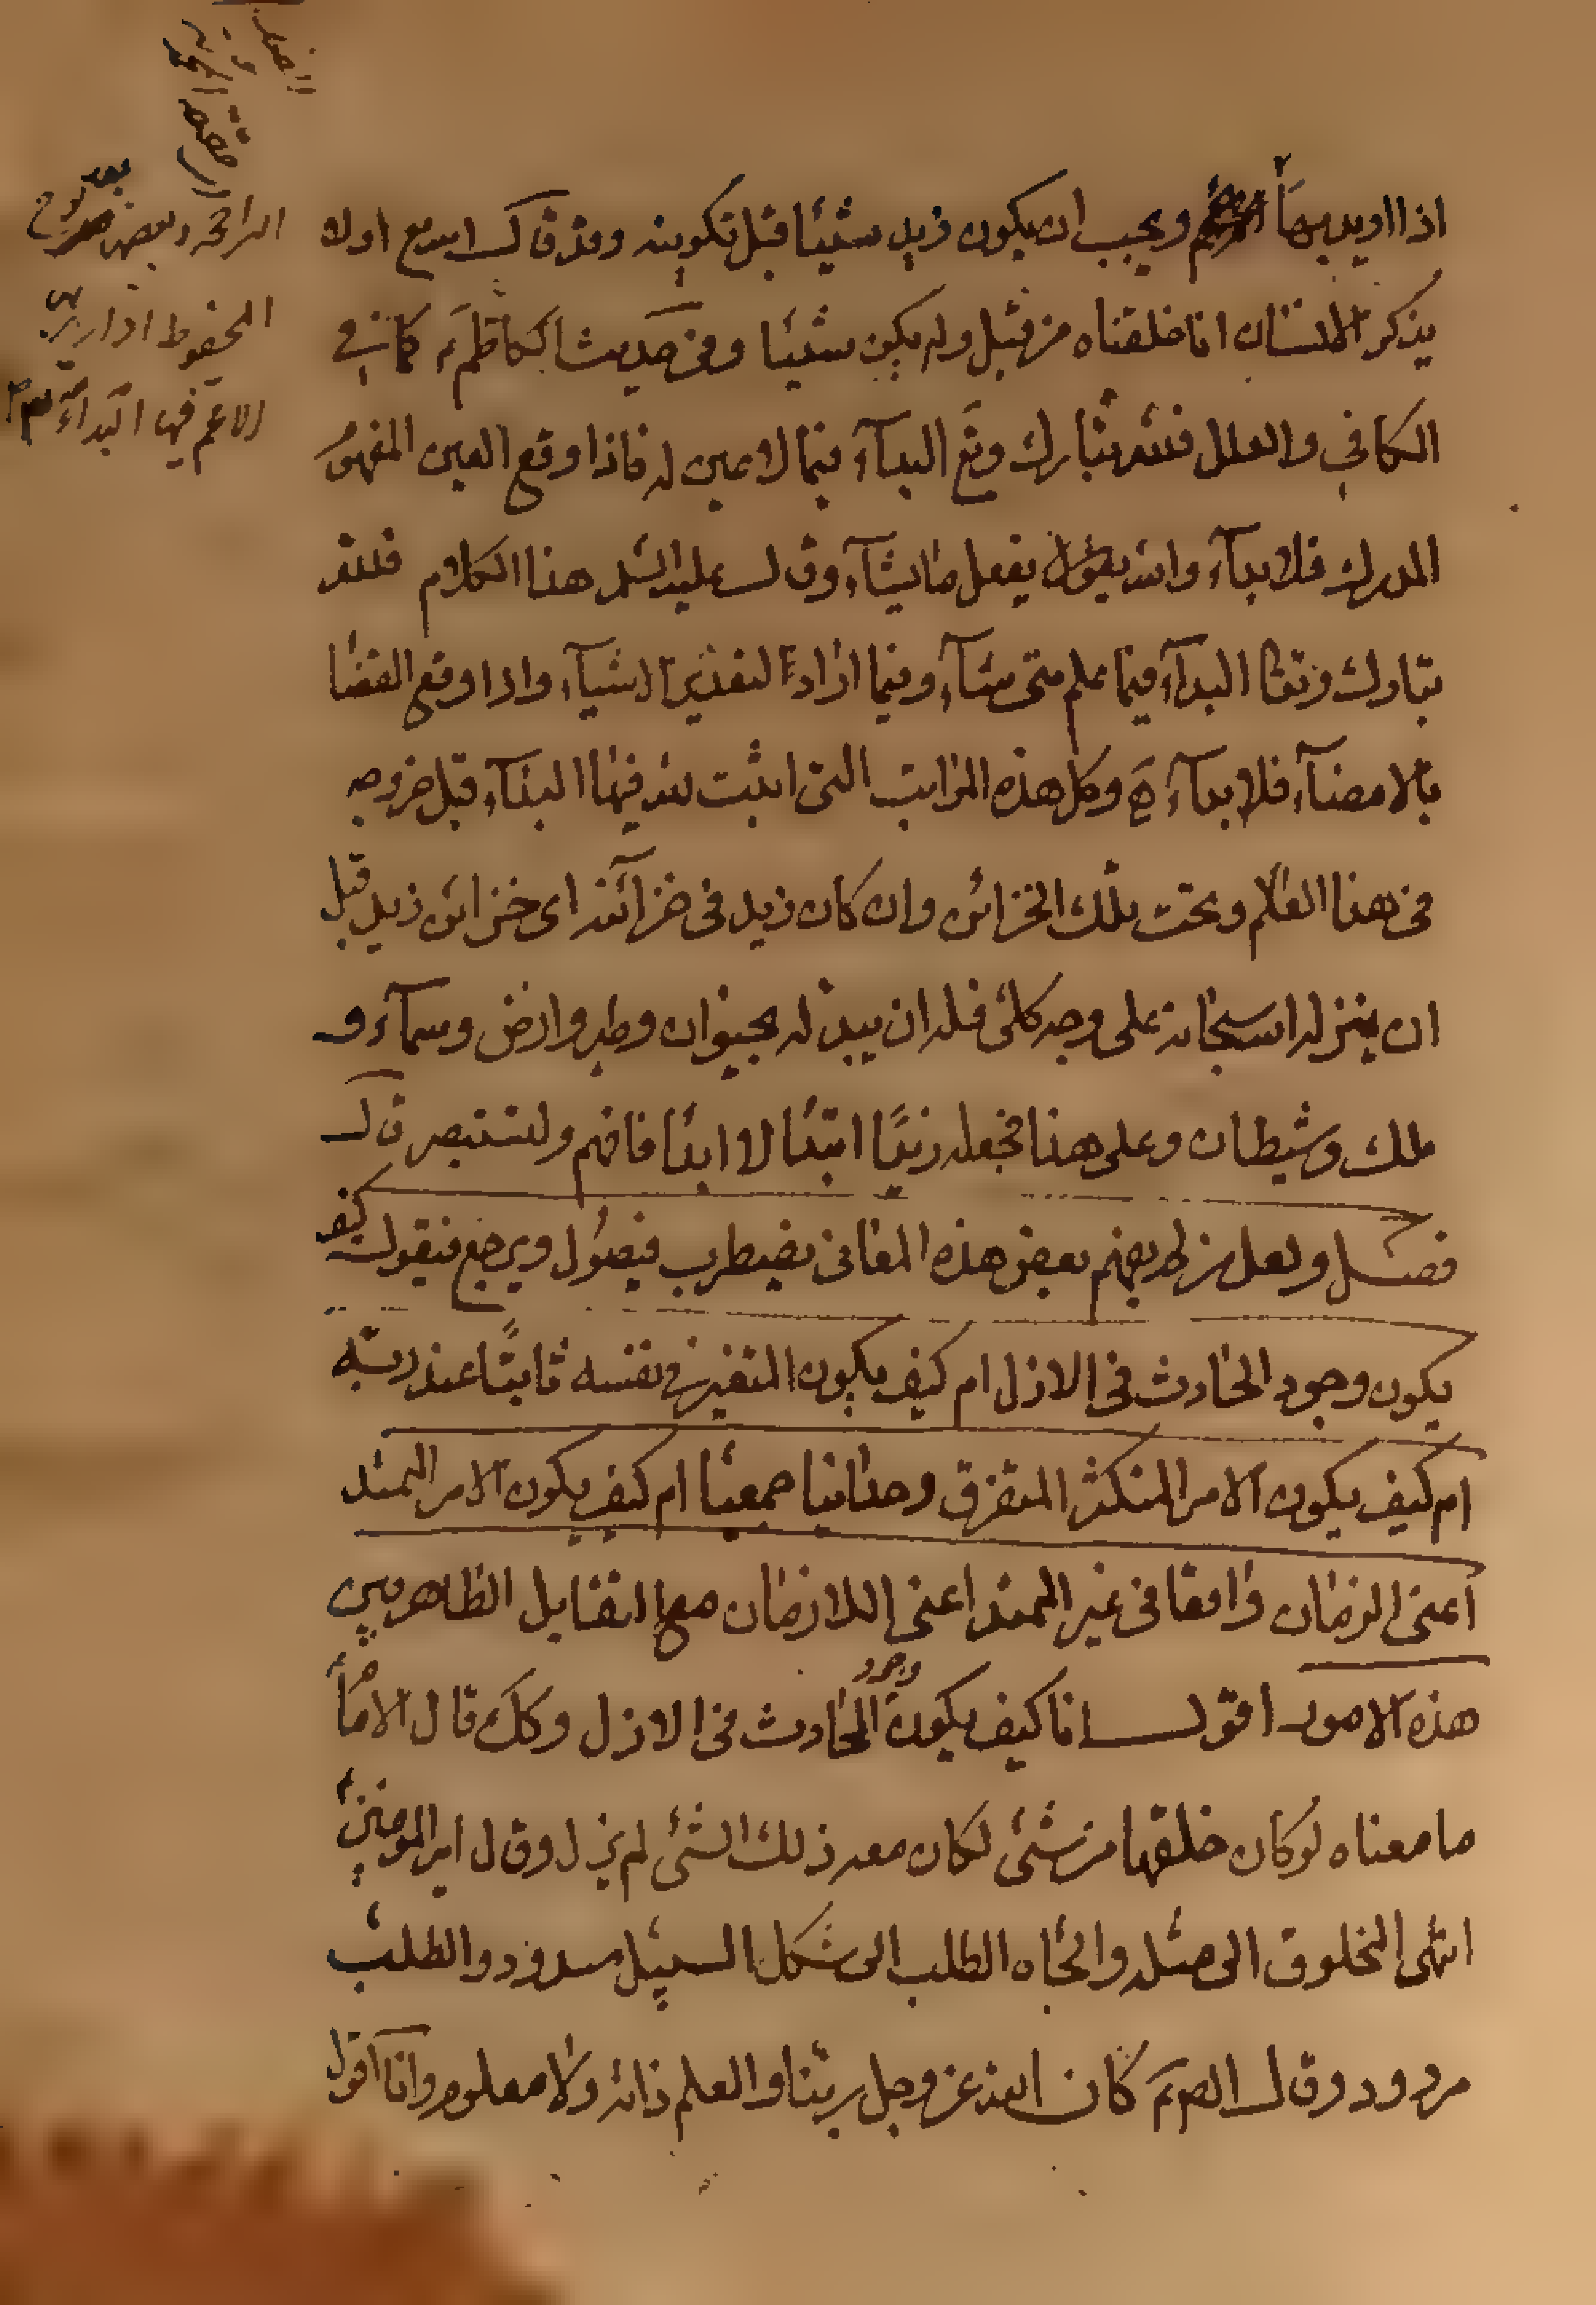 اذا اريد بها ويجب ان يكون زيد شيئا قبل تكوينه وقد قال الله تع اولا
يذكر الانسان انا خلقناه من قبل ولم يكن شيئا وفي حديث الكاظم ع كما في
الكافي والعلل فلله تبارك وتع البدآء فيما لا عين له فاذا وقع العين المفهوم
المدرك فلا بدآء والله يفعل ما يشآء وقال عليه السلم هذا الكلام فلله
تبارك وتعا البدآء فيما علم متى شآء وفيما اراد لتقدير الاشيآء واذا وقع القضا
بالامضآء فلا بدآء وكل هذه المراتب التي اثبت لله فيها البدآء قبل خروجه
في هذا العالم وتحت تلك الخزائن وان كان زيد في خزائنه اى خزائن زيد قبل
ان ينزله الله سبحانه على وجه كلي فله ان يبدله بحيوان وطير وارض وسمآء و
ملك وشيطان وعلى هذا فجعله زيدا ابتدا لا ابدا فافهم ولتستبصر قال
فصل ولعل من لم يفهم بعض هذه المعاني يضطرب فيصول ويرجع فيقول كيف
يكون وجود الحادث في الازل ام كيف يكون المتغير في نفسه ثابتا عند ربه
ام كيف يكون الامر المتكثر المتفرق وحدانيا جمعيا ام كيف يكون الامر الممتد
اعني الزمان واقعا في غير الممتد اعني اللازمان مع التقابل الظاهر بين
هذه الامور اقول انا كيف يكون وجود الحادث في الازل وكك قال الامام
ما معناه لو كان خلقها من شئ لكان معه ذلك الشئ لم يزل وقال امير المومنين
انتهى المخلوق الى مثله والجاه الطلب الى شكل السبيل مسدود والطلب
مردود وقال الص ع كان الله عز وجل ربنا والعلم ذاته ولا معلوم وانا اقول